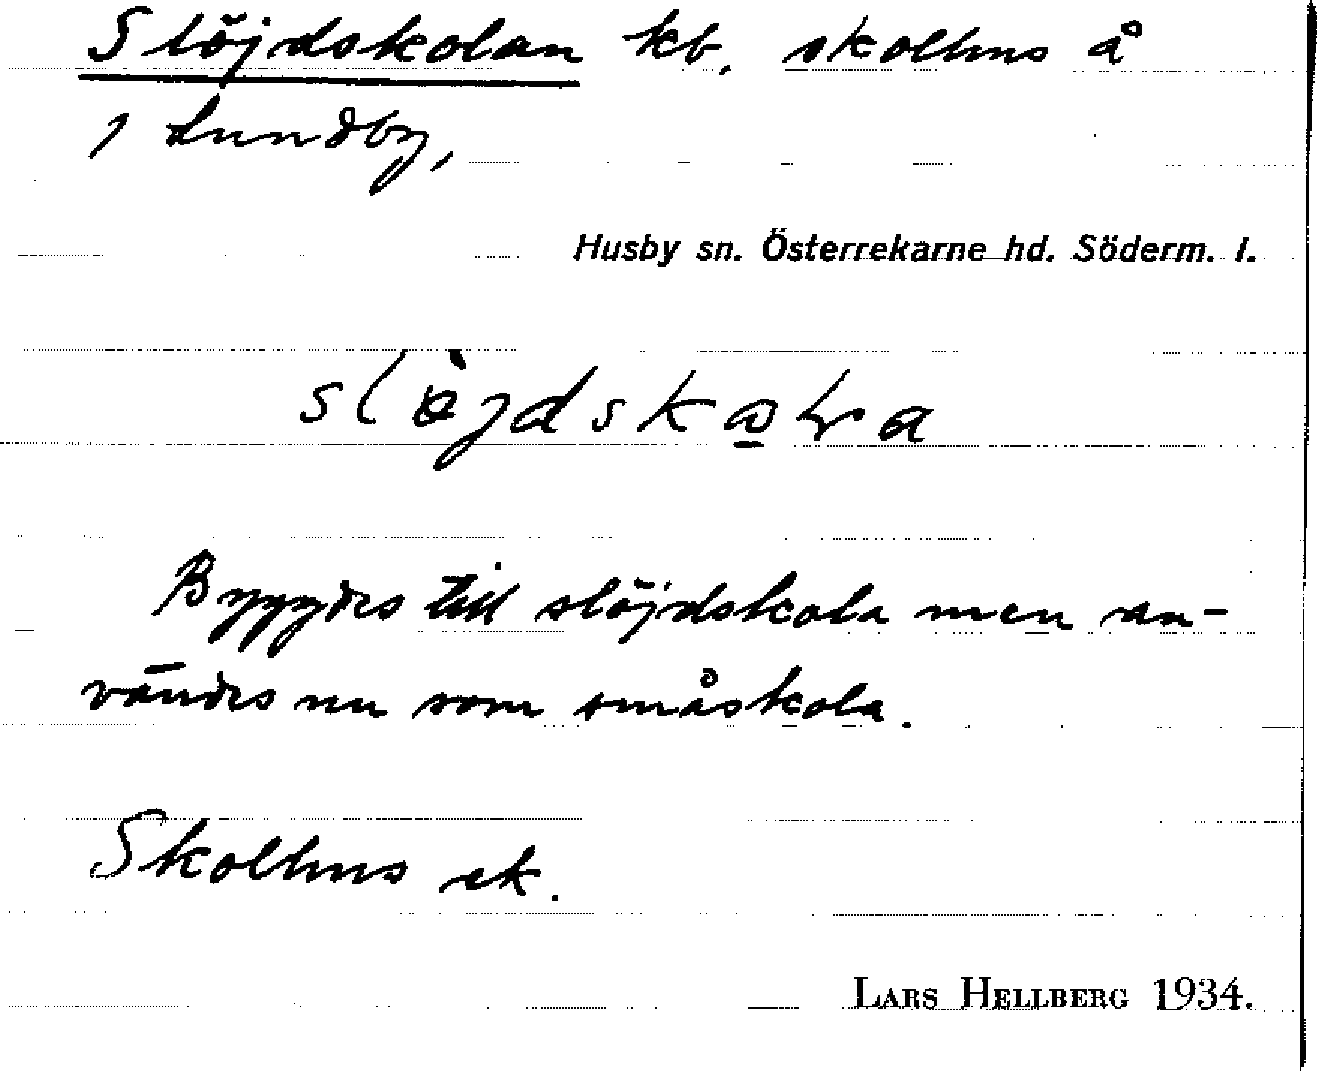 Slöjdskolan kb. skolhus å
1 Lundby,
Husby sn. Österrekarne hd. Söderm. l.
Byggdes till slöjdskola men an-
vändes nu som småskola.
Skolhus ek.
LARS HELLBERG 1934.